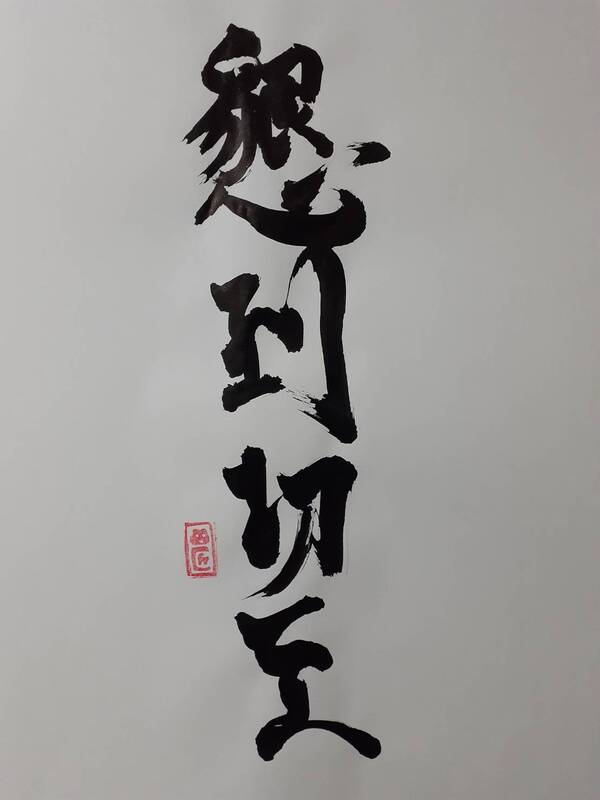 懇到切至